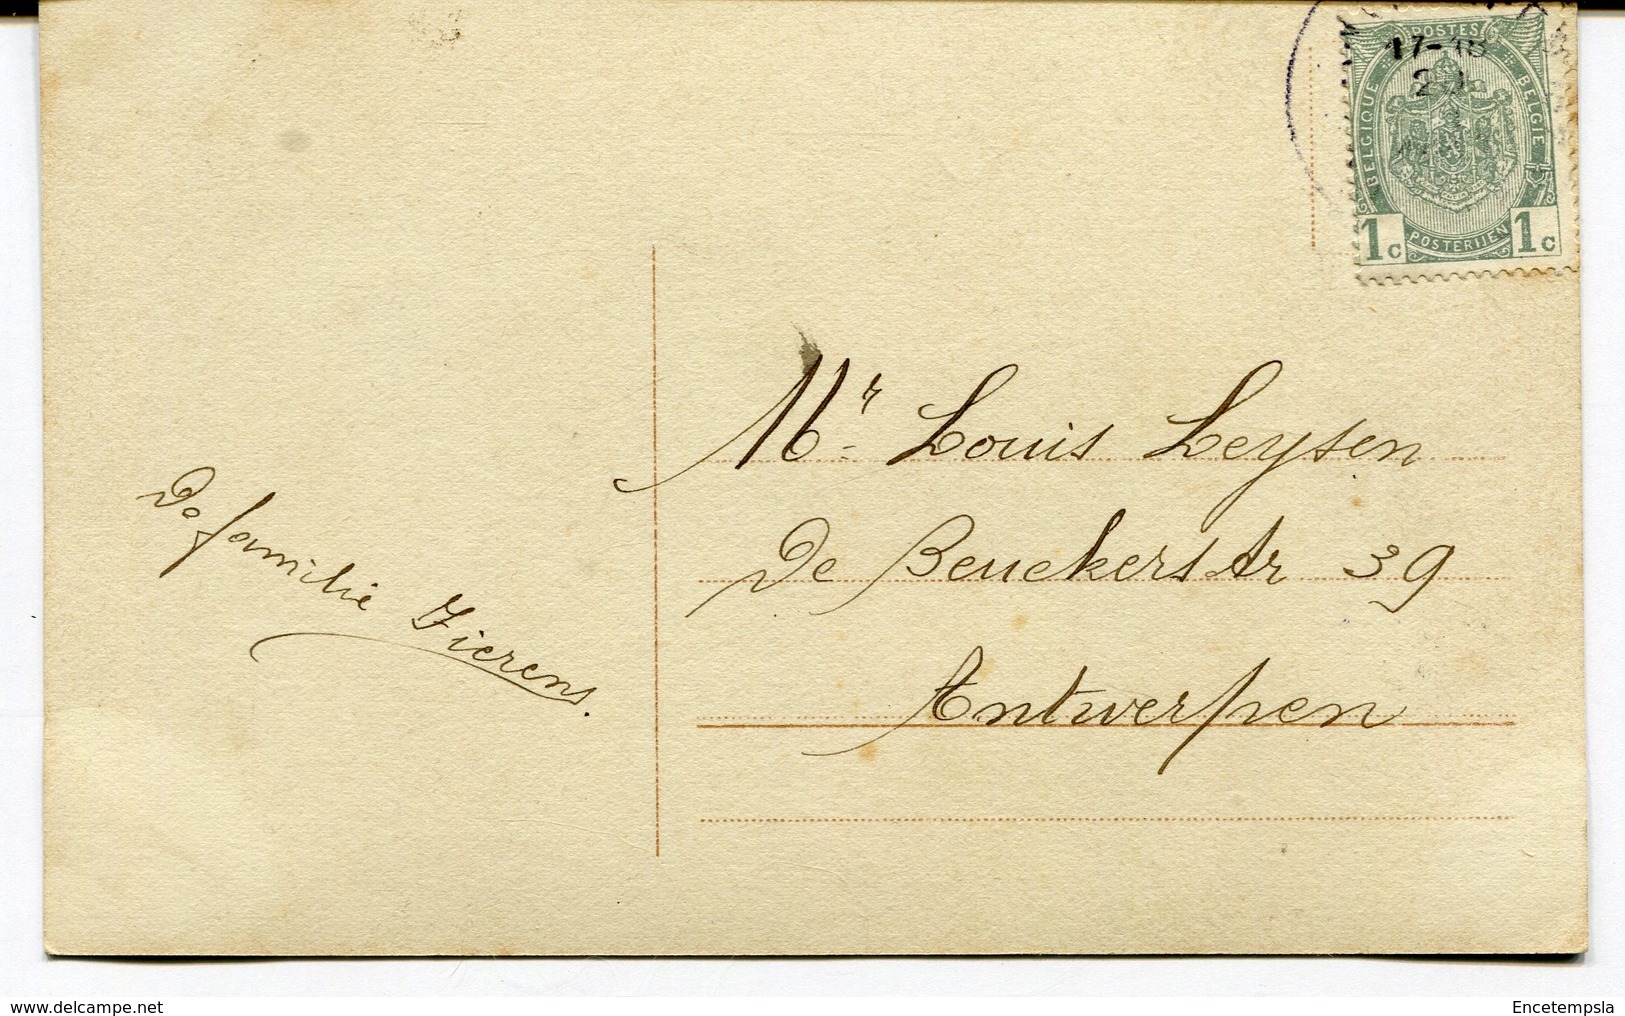 17-18
20
POSTES
BELGIQUE
BELGIE
POSTERIJEN
1c 1c
Mr Louis Leysen
De Beuckerstr 39
Antwerpen
De familie Fierens.
delcampe.net
Encetempsla